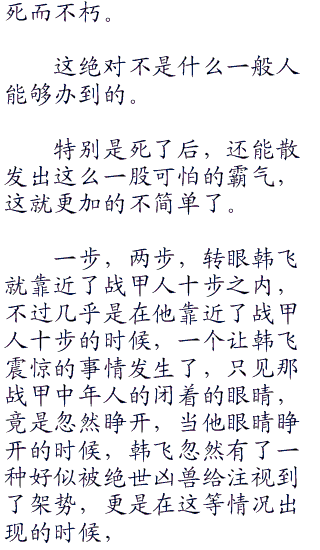 死而不朽。
这绝对不是什么一般人
能够办到的。
特别是死了后，还能散
发出这么一股可怕的霸气，
这就更加的不简单了。
一步，两步，转眼韩飞
就靠近了战甲人十步之内，
不过几乎是在他靠近了战甲
人十步的时候，一个让韩飞
震惊的事情发生了，只见那
战甲中年人的闭着的眼睛，
竟是忽然睁开，当他眼睛睁
开的时候，韩飞忽然有了一
种好似被绝世凶兽给注视到
了架势，更是在这等情况出
现的时候，